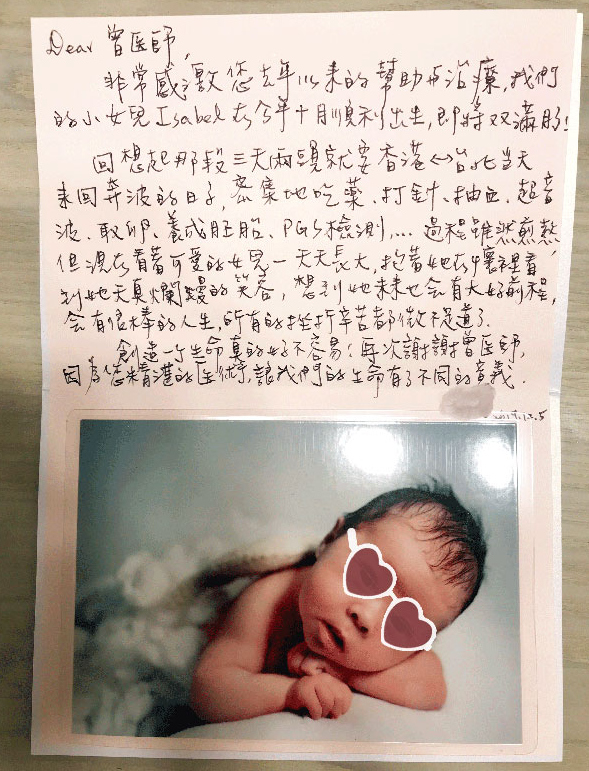 Dear 曾医師,
非常感激您去年以来的幫助与治療,我們
的小女兒Isabel在今年十月順利出生,即將双滿月!
回想起那段三天兩頭就要香港↔台北當天
来回奔波的日子,密集地吃藥、打針、抽血、超音
波、取卵、養成胚胎、PGS檢測,... 過程雖然煎熬,
但現在看著可愛的女兒一天天長大,抱著她在懷裡看
到她天真爛熳的笑容,想到她未来也会有大好前程,
会有很棒的人生,所有的挫折辛苦都微不足道了.
創造一个生命真的好不容易!再次謝謝曾医師,
因為您精湛的医術,讓我們的生命有了不同的意義.
12.5